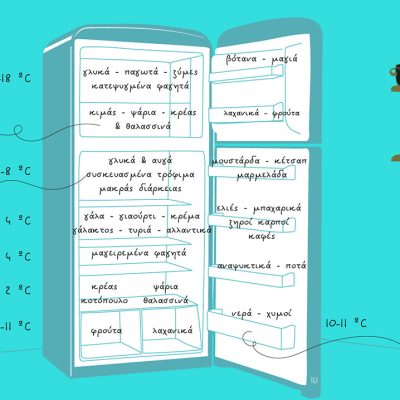 βότανα - μαγιά
-18 °C
γλυκά - παγωτά - ζύμες
κατεψυγμένα φαγητά
κιμάς - ψάρια - κρέας
& θαλασσινά
λαχανικά - φρούτα
-8 °C
γλυκά & αυγά
συσκευασμένα τρόφιμα
μακράς διάρκειας
μουστάρδα - κέτσαπ
μαρμελάδα
4 °C
γάλα - γιαούρτι - κρέμα
γάλακτος - τυριά - αλλαντικά
ελιές - μπαχαρικά
ξηροί καρποί
καφές
4 °C
μαγειρεμένα φαγητά
αναψυκτικά - ποτά
2 °C
κρέας ψάρια
κοτόπουλο θαλασσινά
-11 °C
φρούτα λαχανικά
νερά - χυμοί
10-11 °C